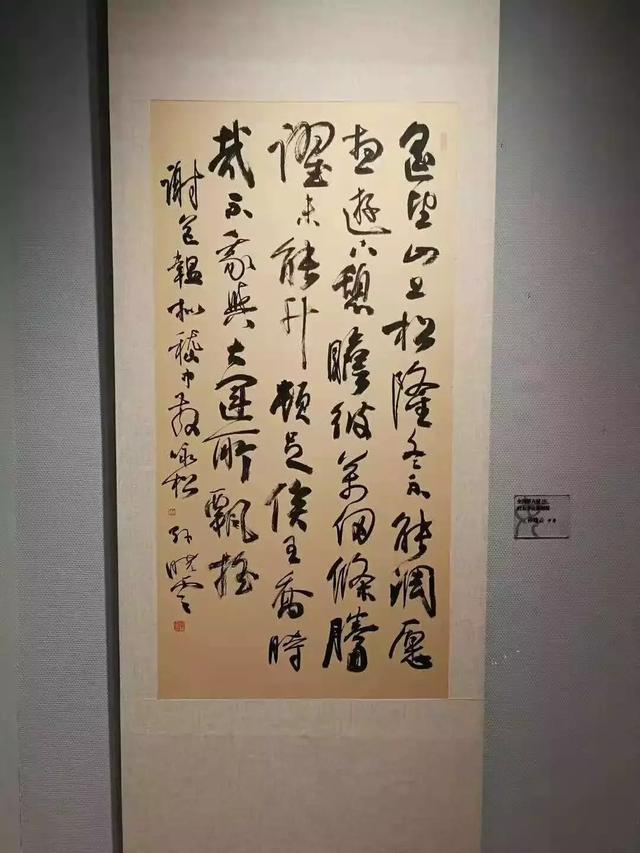 遥望山上松隆冬不能凋愿
想遊下憩瞻彼萬仞條騰
躍未能升頓足俟王喬時
哉不我與大運所飄摇
謝道韞拟嵇中散咏松 孙晓雲